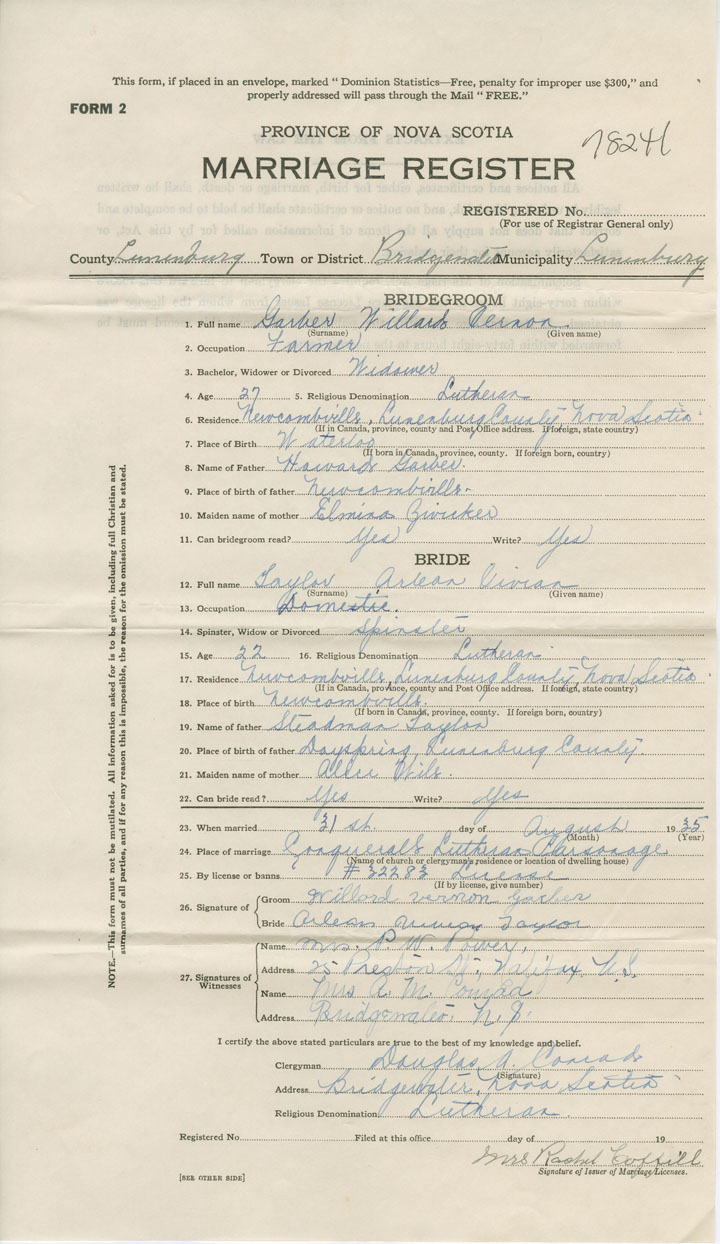 This form, if placed in an envelope, marked " Dominion Statistics—Free, penalty for improper use $300," and
properly addressed will pass through the Mail " FREE."
FORM 2
PROVINCE OF NOVA SCOTIA
78241
MARRIAGE REGISTER
REGISTERED No.
(For use of Registrar General only)
County Lunenburg Town or District Bridgewater Municipality Lunenburg
BRIDEGROOM
1. Full name Garber Willard Vernon
(Surname) (Given name)
2. Occupation Farmer
3. Bachelor, Widower or Divorced Widower
4. Age 27 5. Religious Denomination Lutheran
6. Residence Newcombville, Lunenburg County, Nova Scotia
(If in Canada, province, county and Post Office address. If foreign, state country)
7. Place of Birth Waterloo
(If born in Canada, province, county. If foreign born, country)
8. Name of Father Howard Garber.
9. Place of birth of father Newcombville.
10. Maiden name of mother Elmina Zwicker
11. Can bridegroom read? Yes Write? Yes
BRIDE
12. Full name Taylor Arlean Vivian
(Surname) (Given name)
13. Occupation Domestic.
14. Spinster, Widow or Divorced Spinster
15. Age 22 16. Religious Denomination Lutheran
17. Residence Newcombville, Lunenburg County, Nova Scotia
(If in Canada, province, county and Post Office address. If foreign, state country)
18. Place of birth Newcombville.
(If born in Canada, province, county. If foreign born, country)
19. Name of father Steadman Taylor
20. Place of birth of father Dayspring, Lunenburg County.
21. Maiden name of mother Allie Wile.
22. Can bride read? Yes Write? Yes
23. When married 31 st. day of August 1935
(Month) (Year)
24. Place of marriage Conquerall Lutheran Parsonage
(Name of church or clergyman's residence or location of dwelling house)
25. By license or banns # 32283 License
(If by license, give number)
26. Signature of Groom Willard Vernon Garber
Bride Arlean Vivian Taylor
27. Signatures of Witnesses Name Mrs. P. W. Power,
Address 25 Preston St., Halifax N.S.
Name Mrs A. M. Conrad
Address Bridgewater, N.S.
I certify the above stated particulars are true to the best of my knowledge and belief.
Clergyman Douglas A. Conrad
(Signature)
Address Bridgewater, Nova Scotia
Religious Denomination Lutheran.
Registered No. Filed at this office day of 19
Mrs Rachel
Signature of Issuer of Marriage Licenses.
[SEE OTHER SIDE]
NOTE.—This form must not be mutilated. All information asked for is to be given, including full Christian and
surnames of all parties, and if for any reason this is impossible, the reason for the omission must be stated.